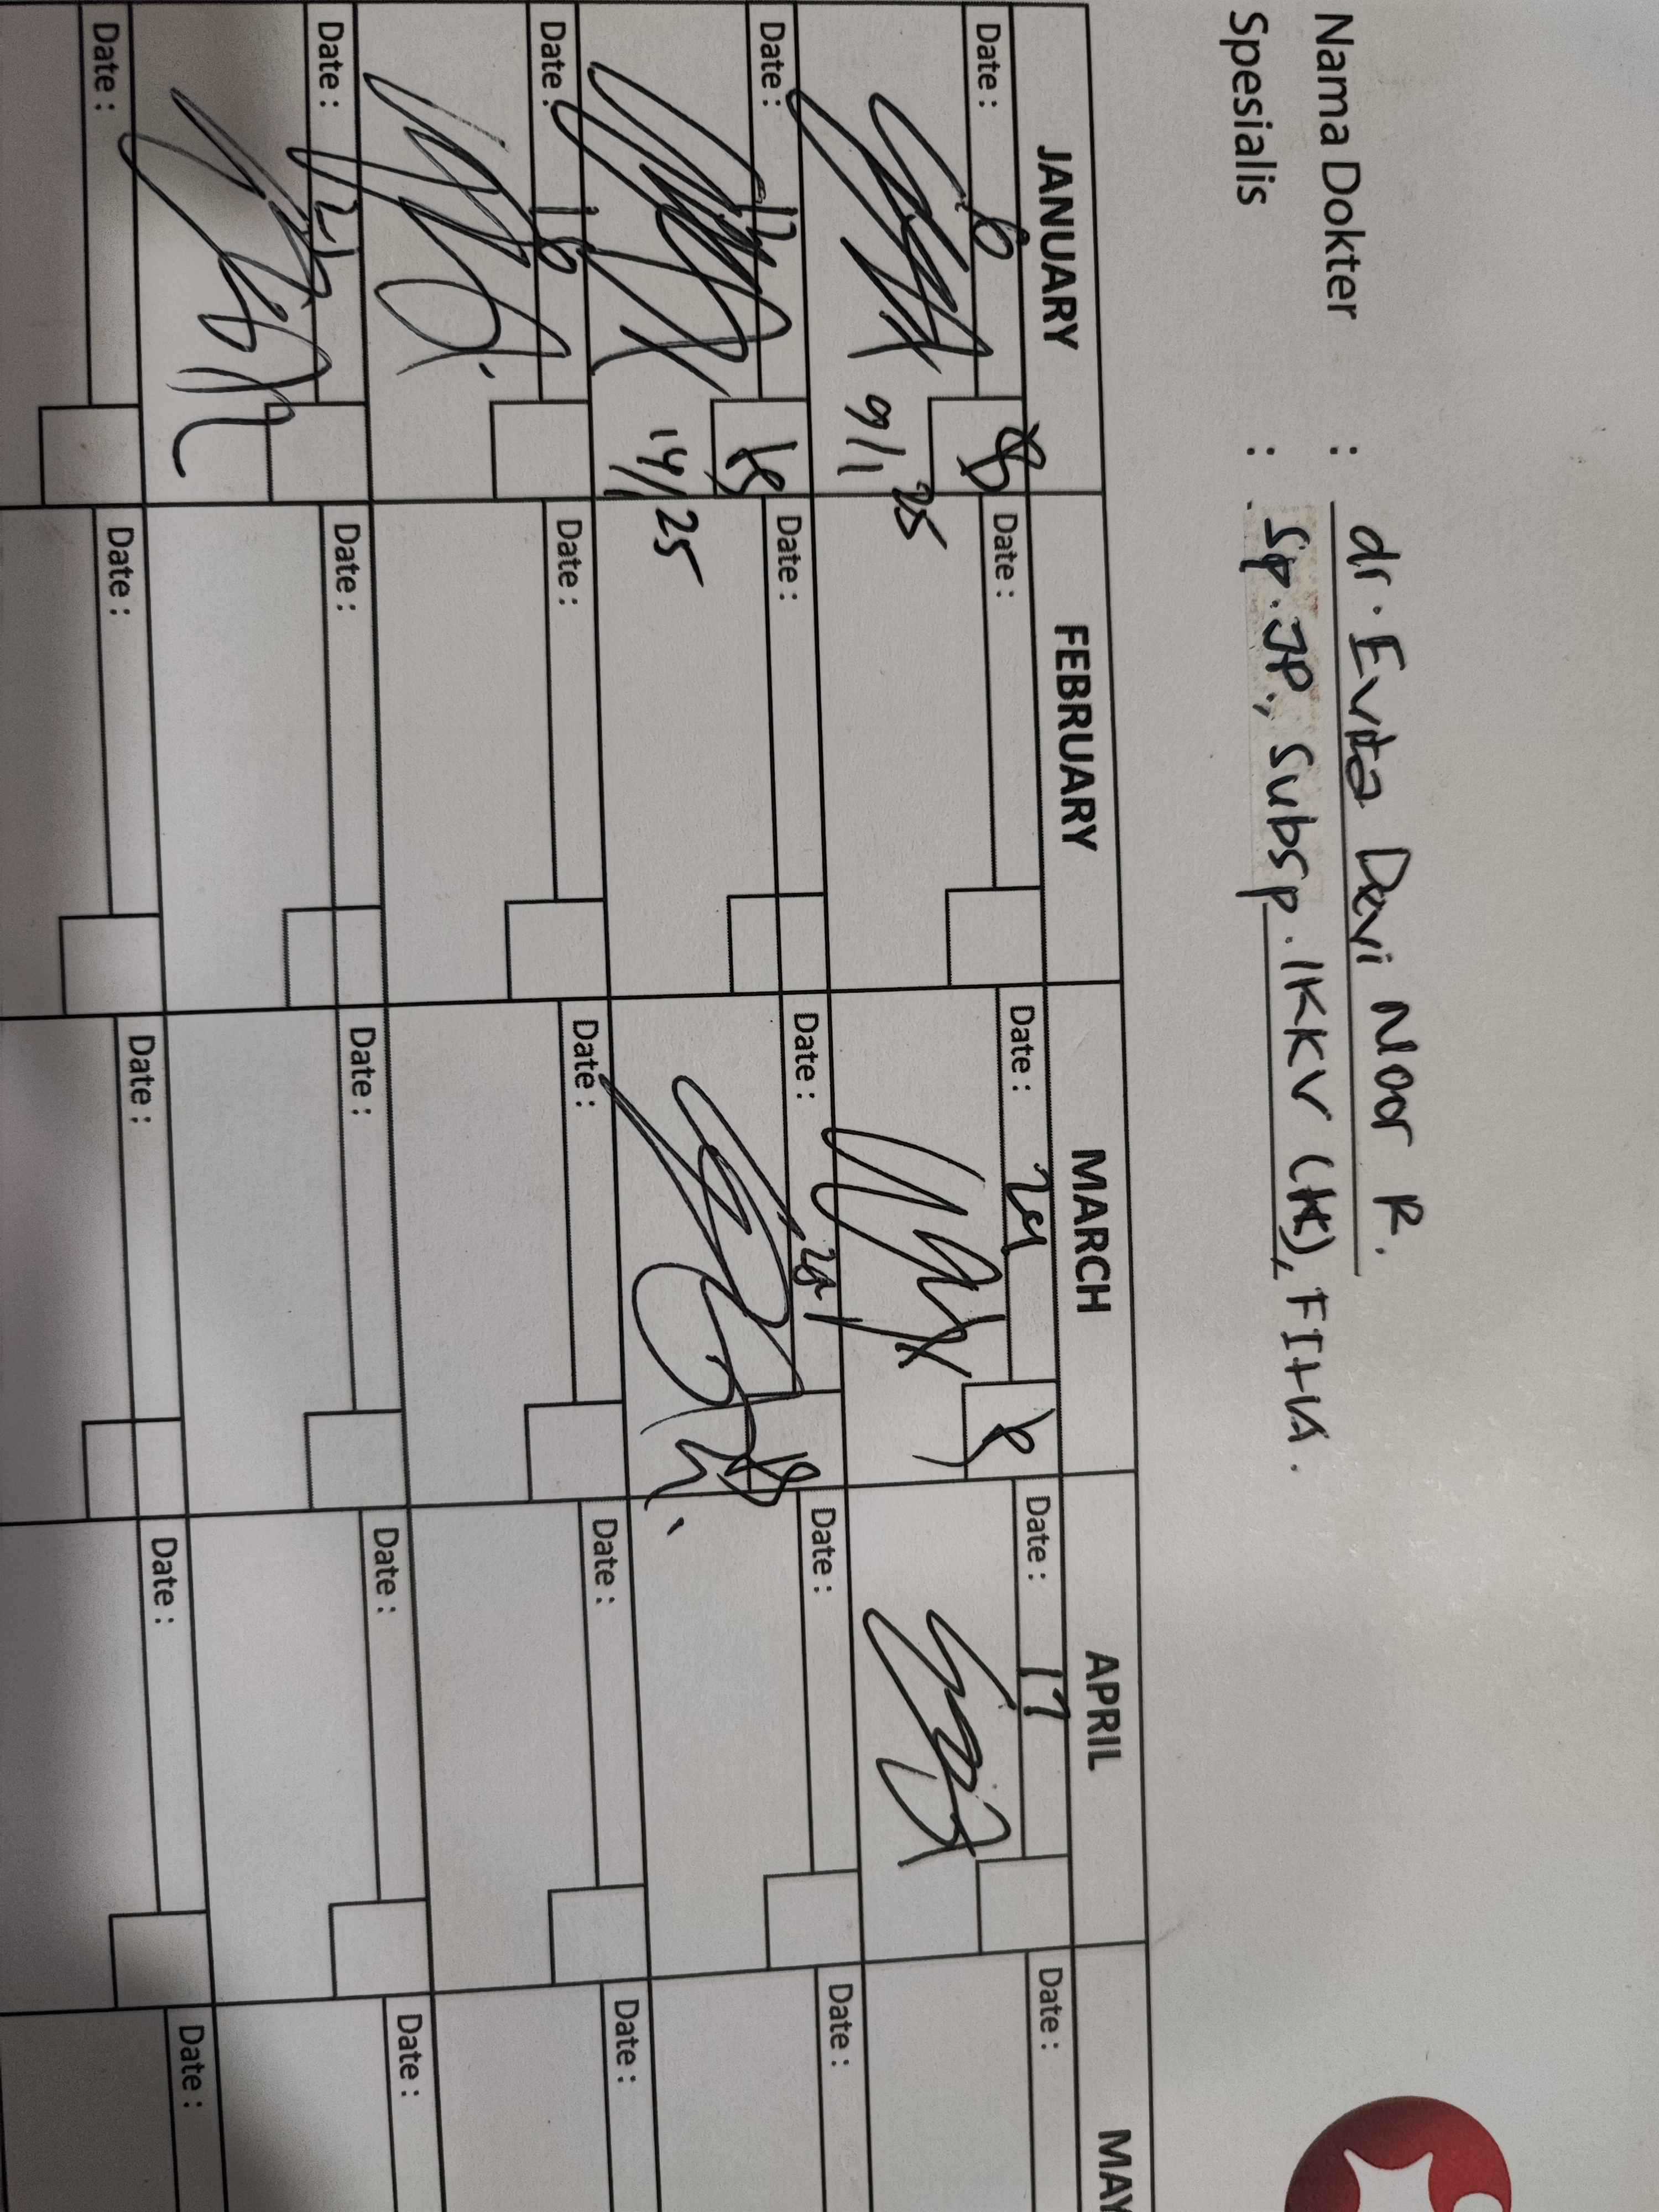 Nama Dokter : dr. Evita Devi Noor R.
Spesialis : Sp.JP., Subsp. IKKV (K), FIHA.
JANUARY FEBRUARY MARCH APRIL MAY
Date : 6 Date : Date : 24 Date : 17 Date :
9/1 25
Date : 13 Date : Date : Date : Date :
14/ 25
Date : 16 Date : Date : Date : Date :
Date : Date : Date : Date : Date :
Date : Date : Date : Date :